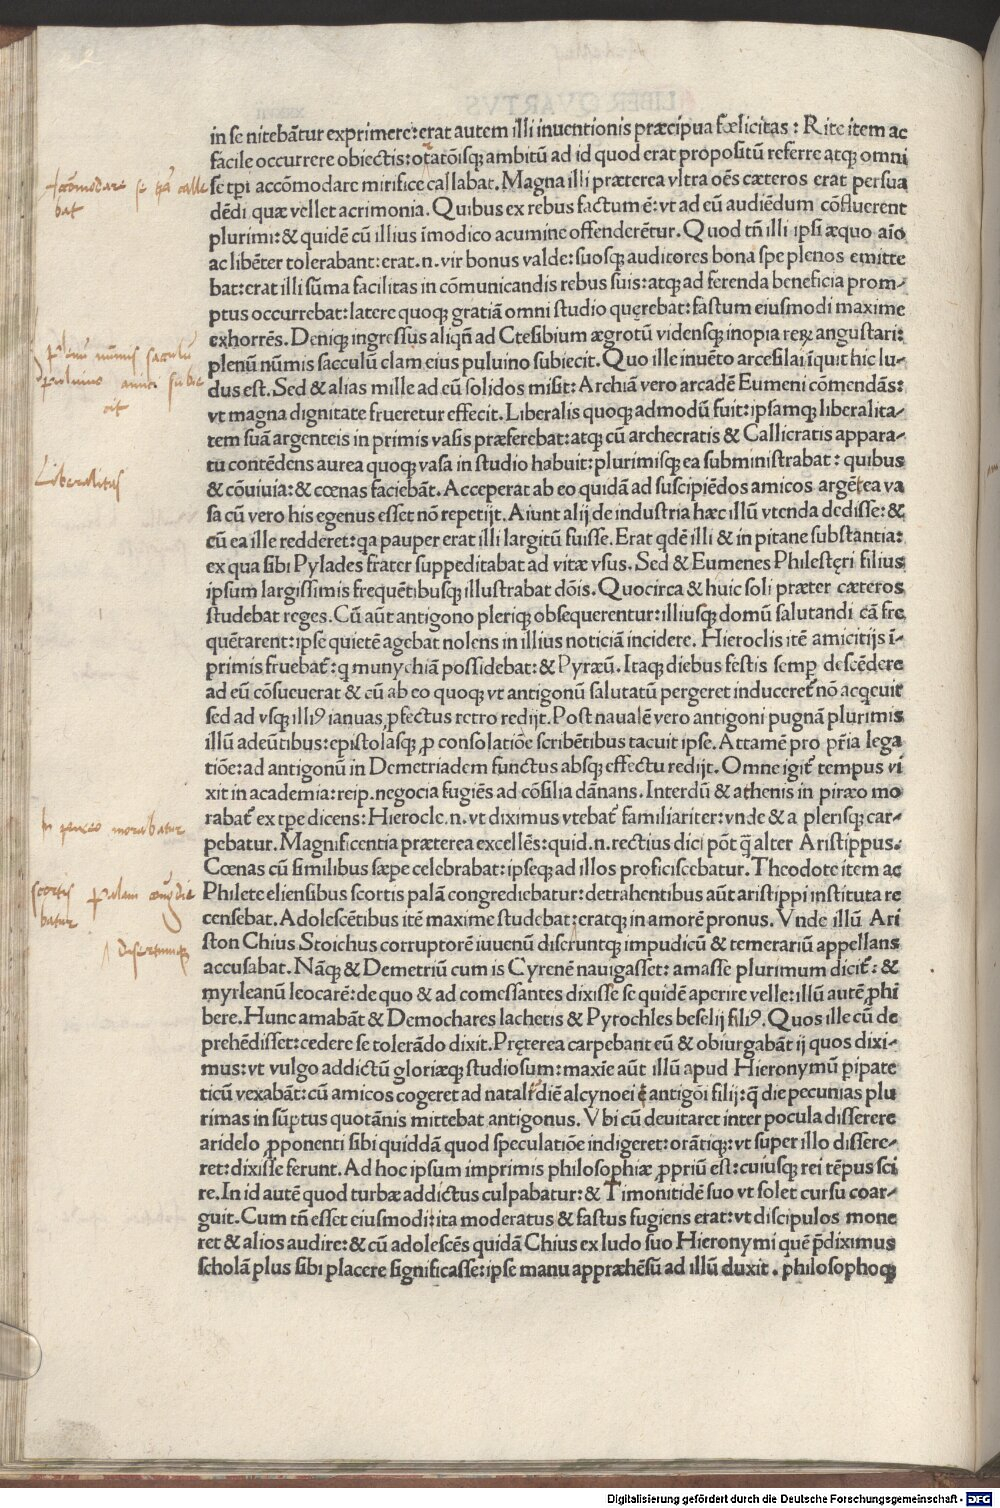 in se nitebãtur exprimere: erat autem illi inuentionis præcipua fœlicitas: Rite item ac
facile occurrere obiectis: otatõisq; ambitũ ad id quod erat propositũ referre atq; omni
se tp̃i accõmodare mirifice callabat. Magna illi præterea vltra oẽs cæteros erat persua
dẽdi quæ vellet acrimonia. Quibus ex rebus factum ẽ: vt ad eũ audiẽdum cõfluerent
plurimi: & quidẽ cũ illius ĩmodico acumine offenderẽtur. Quod tñ illi ipsi æquo aĩo
ac libẽter tolerabant: erat.n. vir bonus valde: suosq; auditores bona spe plenos emitte
bat: erat illi sũma facilitas in cõmunicandis rebus suis: atq; ad ferenda beneficia prom-
ptus occurrebat: latere quoq; gratiã omni studio querebat: fastum eiusmodi maxime
exhorrẽs. Deniq; ingressus aliqñ ad Ctesibium ægrotũ vidensq; inopia reꝝ angustari:
plenũ nũmis sacculũ clam eius puluino subiecit. Quo ille inuẽto arcesilai ĩquit hic lu-
dus est. Sed & alias mille ad eũ solidos misit: Archiã vero arcadẽ Eumeni cõmendãs:
vt magna dignitate frueretur effecit. Liberalis quoq; admodũ fuit: ipsamq; liberalita-
tem suã argenteis in primis vasis præferebat: atq; cũ archecratis & Callicratis appara-
tu contẽdens aurea quoq; vasa in studio habuit: plurimisq; ea subministrabat: quibus
& cõuiuia: & cœnas faciebãt. Acceperat ab eo quidã ad suscipiẽdos amicos argẽtea va
sa cũ vero his egenus esset nõ repetijt. Aiunt alij de industria hæc illũ vtenda dedisse: &
cũ ea ille redderet: qa pauper erat illi largitũ fuisse. Erat qdẽ illi & in pitane substantia:
ex qua sibi Pylades frater suppeditabat ad vitæ vsus. Sed & Eumenes Philestęri filius
ipsum largissimis frequẽtibusq; illustrabat dõis. Quocirca & huic soli præter cæteros
studebat reges. Cũ aũt antigono pleriq; obsequerentur: illiusq; domũ salutandi cã fre
quẽtarent: ipse quietẽ agebat nolens in illius noticiã incidere. Hieroclis itẽ amicitijs ĩ-
primis fruebat̃: q munychiã possidebat: & Pyræũ. Itaq; diebus festis semꝑ descẽdere
ad eũ cõsueuerat & cũ ab eo quoq; vt antigonũ salutatũ pergeret induceret̃ nõ acqeuit
sed ad vsq; illiꝰ ianuas ꝓfectus retro redijt. Post naualẽ vero antigoni pugnã plurimis
illũ adeũtibus: epistolasq; ꝓ consolatiõe scribẽtibus tacuit ipse. Attamẽ pro pr̃ia lega
tiõe: ad antigonũ in Demetriadem functus absq; effectu redijt. Omne igit̃ tempus vi
xit in academia: reip. negocia fugiẽs ad cõsilia dãnans. Interdũ & athenis in piræo mo
rabat̃ ex tꝑe dicens: Hierocle.n. vt diximus vtebat̃ familiariter: vnde & a plerisq; car-
pebatur. Magnificentia præterea excellẽs: quid.n. rectius dici põt q̃ alter Aristippus.
Cœnas cũ similibus sæpe celebrabat: ipseq; ad illos proficiscebatur. Theodote item ac
Philete eliensibus scortis palã congrediebatur: detrahentibus aũt aristippi instituta re
censebat. Adolescẽtibus itẽ maxime studebat: eratq; in amorẽ pronus. Vnde illũ Ari
ston Chius Stoichus corruptorẽ iuuenũ diseruntq; impudicũ & temerariũ appellans
accusabat. Nãq; & Demetriũ cum is Cyrenẽ nauigasset: amasse plurimum dicit̃: &
myrleanũ leocarẽ: de quo & ad comessantes dixisse se quidẽ aperire velle: illũ autẽ ꝓhi
bere. Hunc amabãt & Demochares lachetis & Pytochles beselij filiꝰ. Quos ille cũ de
prehẽdisset: cedere se tolerãdo dixit. Pręterea carpebant eũ & obiurgabãt ij quos dixi-
mus: vt vulgo addictũ gloriæq; studiosum: maxĩe aũt illũ apud Hieronymũ ꝑipate
ticũ vexabãt: cũ amicos cogeret ad natalẽ diẽ alcynoei antigõi filij: q̃ die pecunias plu
rimas in sũptus quotãnis mittebat antigonus. Vbi cũ deuitaret inter pocula disserere
aridelo ꝓponenti sibi quiddã quod speculatiõe indigeret: orãtiq;: vt super illo dissere-
ret: dixisse ferunt. Ad hoc ipsum imprimis philosophiæ ꝓpriũ est: cuiusq; rei tẽpus sci
re. In id autẽ quod turbæ addictus culpabatur: & Timonitidẽ suo vt solet cursu coar-
guit. Cum tñ esset eiusmodi: ita moderatus & fastus fugiens erat: vt discipulos mone
ret & alios audire: & cũ adolescẽs quidã Chius ex ludo suo Hieronymi quẽ p̃diximus
scholã plus sibi placere significasse: ipse manu appræhẽsũ ad illũ duxit. philosophoq;
accõmodare se callebat
plenũ nũmis sacculũ
puluino amici subiecit
Liberalitas
In pireo morabatur
scortis palam congrediebatur
Diseruntque
Digitalisierung gefördert durch die Deutsche Forschungsgemeinschaft - DFG